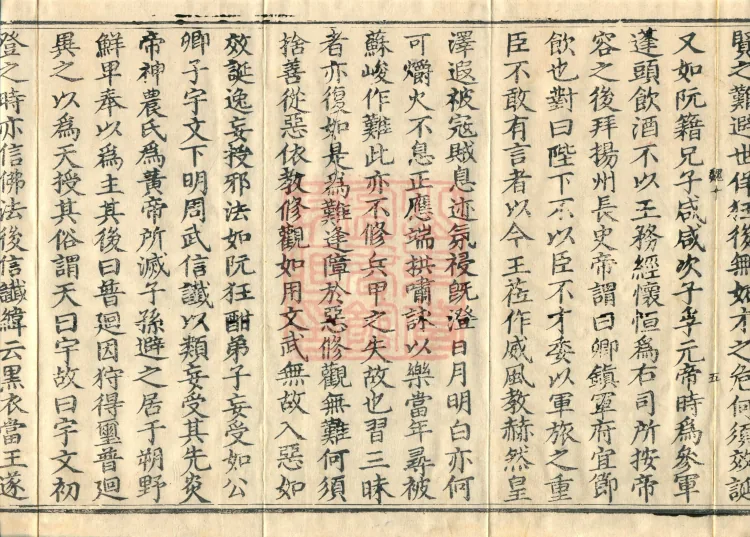 賢之難避世佯狂後無之危何須效誕
五
又如阮籍兄子咸咸次子孚元帝時為參軍
蓬頭飲酒不以王務經懷恒為右司所按帝
容之後拜揚州長史帝謂曰卿鎮軍府宜節
飲也對曰陛下不以臣不才委以軍旅之重
臣不敢有言者以今王莅作威風教赫然皇
澤遐被寇賊息迹氛祲既澄日月明白亦何
可爝火不息正應端拱嘯詠以樂當年尋被
蘇峻作難此亦不修兵甲之失故也習三昧
者亦復如是為難逢障於惡修觀無難何須
捨善從惡依教修觀如用文武無故入惡如
效誕逸妄授邪法如阮狂酣弟子妄受如公
卿子宇文下明周武信讖以類妄受其先炎
帝神農氏為黃帝所滅子孫避之居于朔野
鮮卑奉以為主其後曰普迴因狩得璽普迴
異之以為天授其俗謂天曰宇故曰宇文初
登之時亦信佛法後信讖緯云黑衣當王遂